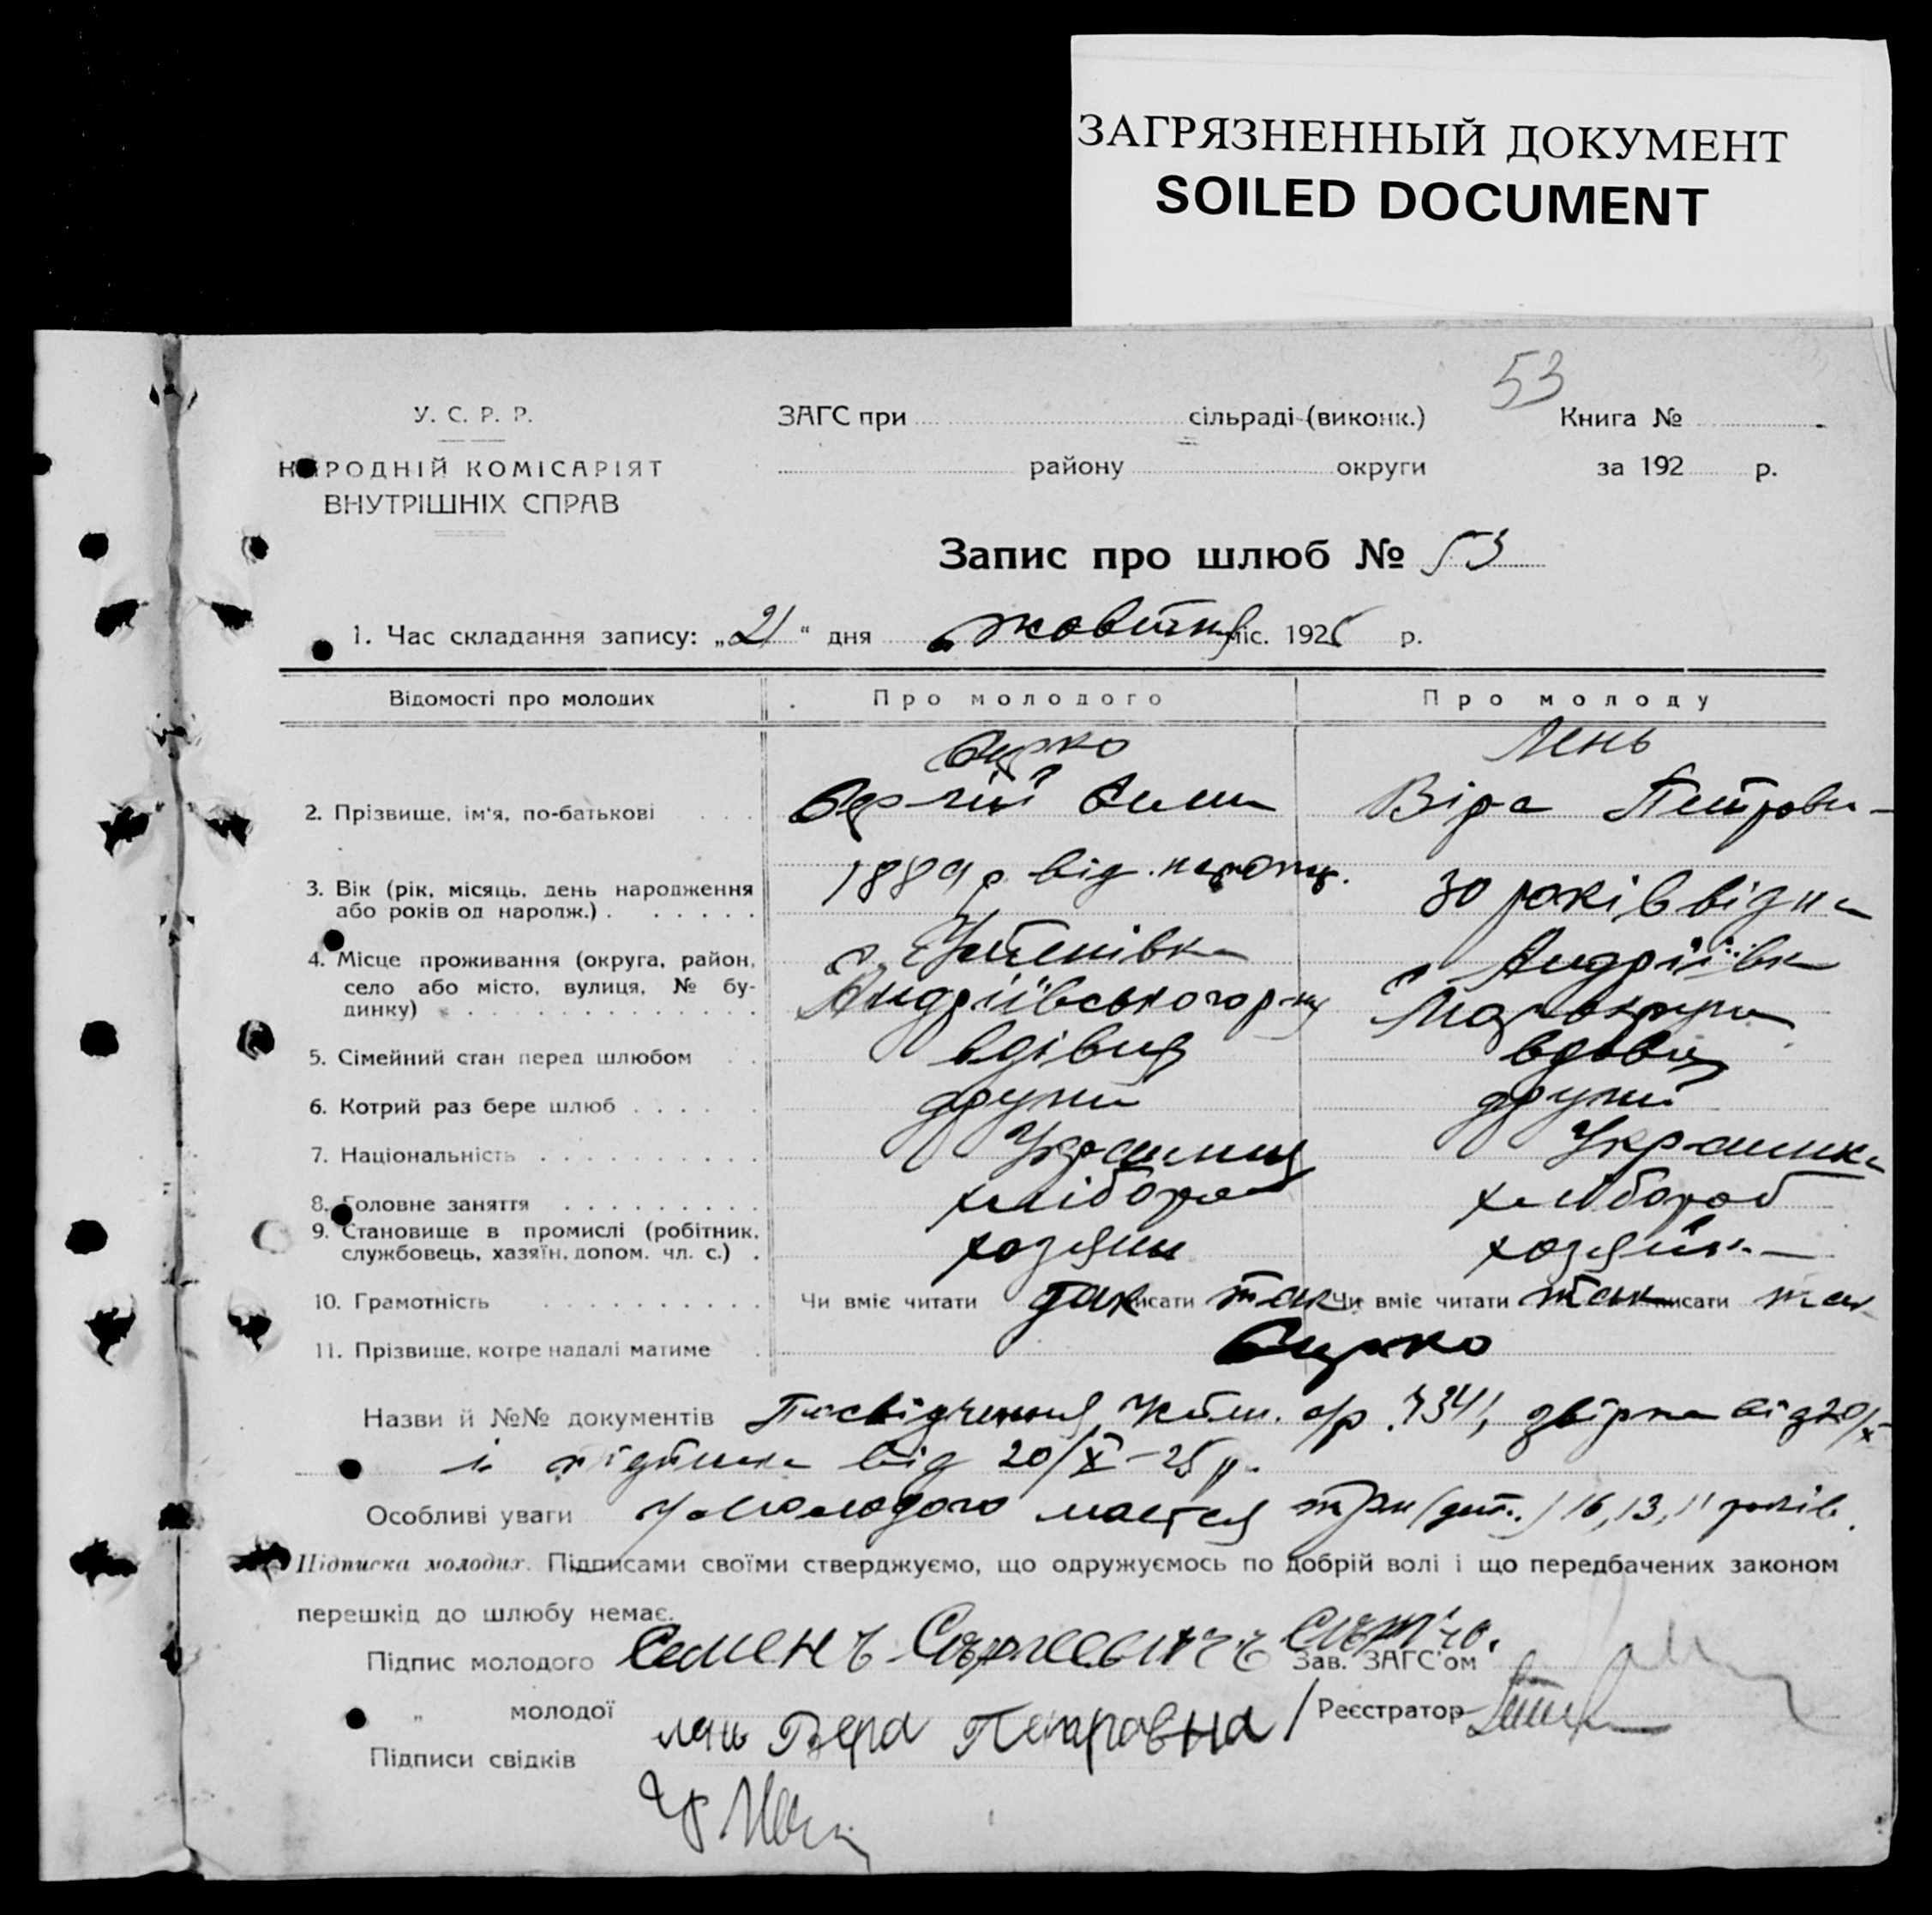 ЗАГРЯЗНЕННЫЙ ДОКУМЕНТ
SOILED DOCUMENT
53
У. С. Р. Р.
ЗАГС при сільраді (виконк.)
Книга №
НАРОДНІЙ КОМІСАРІЯТ
району округи
за 192 р.
ВНУТРІШНІХ СПРАВ
Запис про шлюб № 53
1. Час складання запису: „21“ дня жовтня міс. 1925 р.
Відомості про молодих
Про молодого
Про молоду
2. Прізвище, ім'я, по-батькові
Лень
Віра Петровн
3. Вік (рік, місяць, день народження
або років од народж.)
1889 р. від народж.
30 років від н
4. Місце проживання (округа, район,
село або місто, вулиця, № бу-
динку)
Андріївського р-ну
с Андріївка
5. Сімейний стан перед шлюбом
вдівця
вдова
6. Котрий раз бере шлюб
другий
другий
7. Національність
Українець
Українка
8. Головне заняття
хлібороб
хлібороб
9. Становище в промислі (робітник,
службовець, хазяїн, допом. чл. с.)
хозяин
хозяйка
10. Грамотність
Чи вміє читати так писати так
Чи вміє читати так писати так
11. Прізвище, котре надалі матиме
Назви й №№ документів Посвідчення 7341, звірка від 20/X
і підписка від 20/X-25 р.
Особливі уваги У молодого маєтся три (діт.) 16, 13, 11 років.
Підписка молодих. Підписами своїми стверджуємо, що одружуємось по добрій волі і що передбачених законом
перешкід до шлюбу немає.
Підпис молодого Семенъ Сергеевичъ
Зав. ЗАГС'ом
„ молодої лень Вера Петровна
Реєстратор
Підписи свідків